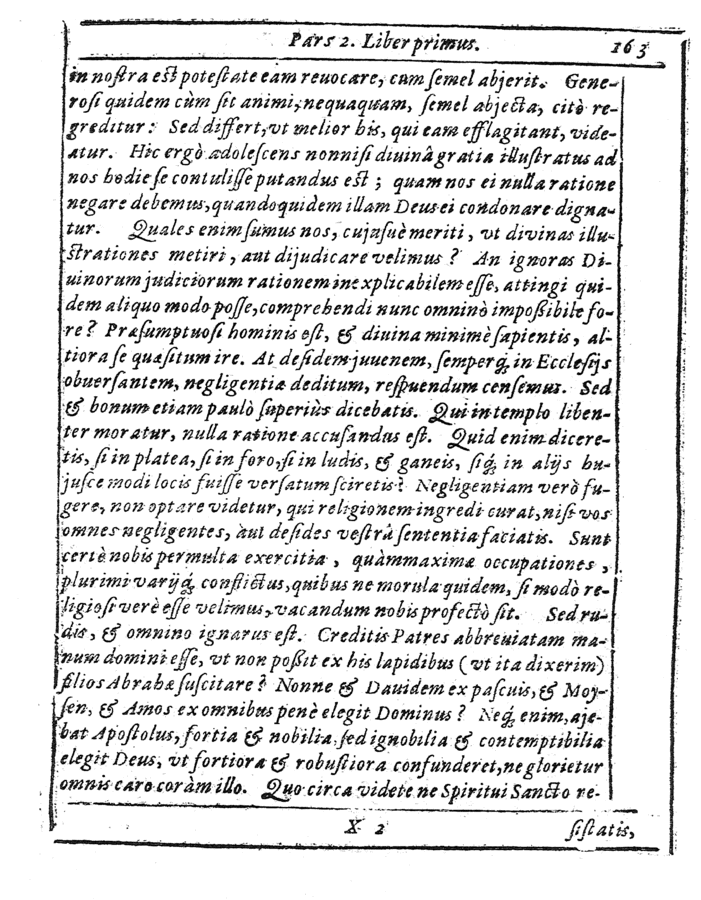 Pars 2. Liber primus. 163
in noſtra eſt poteſtate eam reuocare, cum ſemel abjerit. Gene-
roſi quidem cùm ſit animi, nequaquam, ſemel abjecta, citò re-
greditur: Sed differt, vt melior his, qui eam efflagitant, vide-
atur. Hic ergò adoleſcens nonniſi diuinâ gratia illuſtratus ad
nos hodie ſe contuliſſe putandus eſt; quam nos ei nulla ratione
negare debemus, quandoquidem illam Deus ei condonare digna-
tur. Quales enim ſumus nos, cujuſuè meriti, vt divinas illu-
ſtrationes metiri, aut dijudicare velimus? An ignoras Di-
uinorum judiciorum rationem inexplicabilem eſſe, attingi qui-
dem aliquo modo poſſe, comprehendi nunc omninò impoßibile fo-
re? Præſumptuoſi hominis eſt, & diuina minimè ſapientis, al-
tiora ſe quæſitum ire. At deſidem juuenem, ſemperq́; in Eccleſijs
obuerſantem, negligentiæ deditum, reſpuendum cenſemus. Sed
& bonum etiam paulò ſuperiùs dicebatis. Qui in templo liben-
ter moratur, nulla ratione accuſandus eſt. Quid enim dicere-
tis, ſi in platea, ſi in foro, ſi in ludis, & ganeis, ſiq́; in alijs hu-
juſce modi locis fuiſſe verſatum ſciretis? Negligentiam verò fu-
gere, non optare videtur, qui religionem ingredi curat, niſi vos
omnes negligentes, aut deſides veſtrâ ſententia faciatis. Sunt
certè nobis permulta exercitia, quàmmaximæ occupationes,
plurimi varijq́; conflictus, quibus ne morula quidem, ſi modò re-
ligioſi verè eſſe velimus, vacandum nobis profectò ſit. Sed ru-
dis, & omnino ignarus eſt. Creditis Patres abbreuiatam ma-
num domini eſſe, vt non poßit ex his lapidibus (vt ita dixerim)
filios Abrahæ ſuſcitare? Nonne & Dauidem ex paſcuis, & Moy-
ſen, & Amos ex omnibus penè elegit Dominus? Neq́; enim, aje-
bat Apoſtolus, fortia & nobilia, ſed ignobilia & contemptibilia
elegit Deus, vt fortiora & robuſtiora confunderet, ne glorietur
omnis caro coràm illo. Quo circa videte ne Spiritui Sancto re-
X 2 ſiſtatis,